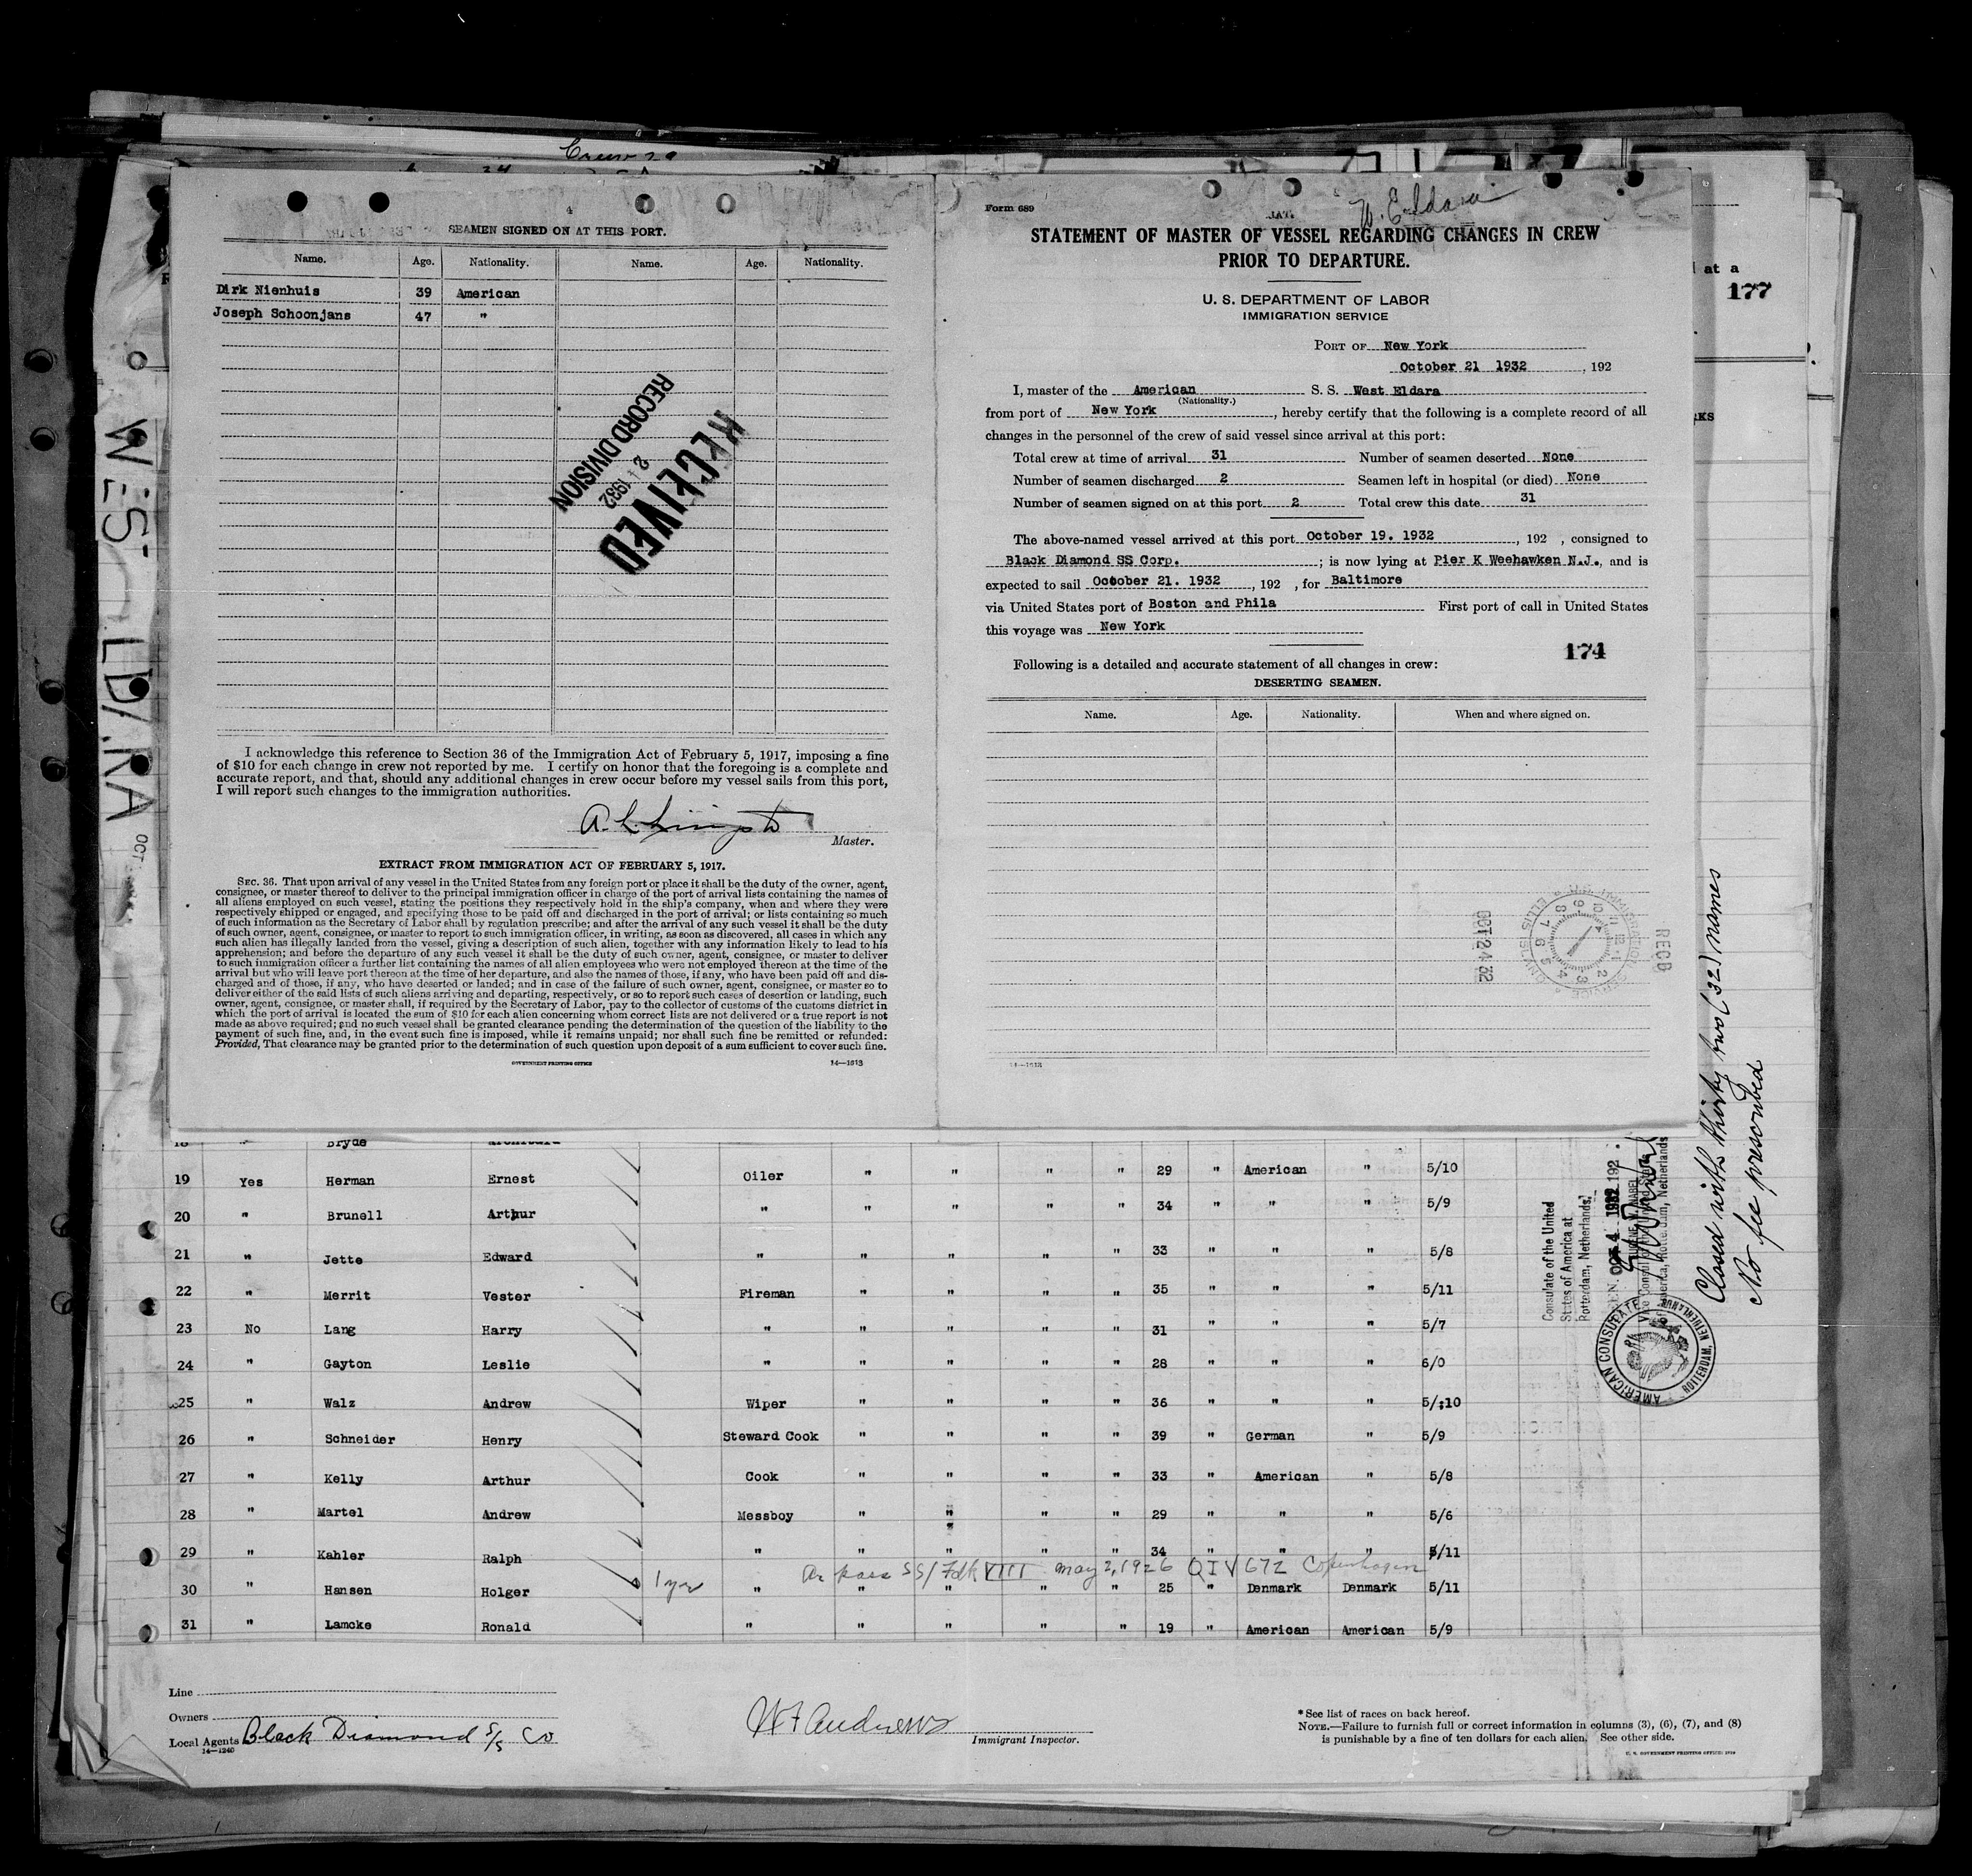 Crew 29
4
SEAMEN SIGNED ON AT THIS PORT.
Name. Age. Nationality. Name. Age. Nationality.
Dirk Nienhuis 39 American
Joseph Schoonjans 47 "
RECEIVED
1932
RECORD DIVISION
I acknowledge this reference to Section 36 of the Immigration Act of February 5, 1917, imposing a fine
of $10 for each change in crew not reported by me. I certify on honor that the foregoing is a complete and
accurate report, and that, should any additional changes in crew occur before my vessel sails from this port,
I will report such changes to the immigration authorities.
Master.
EXTRACT FROM IMMIGRATION ACT OF FEBRUARY 5, 1917.
SEC. 36. That upon arrival of any vessel in the United States from any foreign port or place it shall be the duty of the owner, agent,
consignee, or master thereof to deliver to the principal immigration officer in charge of the port of arrival lists containing the names of
all aliens employed on such vessel, stating the positions they respectively hold in the ship's company, when and where they were
respectively shipped or engaged, and specifying those to be paid off and discharged in the port of arrival; or lists containing so much
of such information as the Secretary of Labor shall by regulation prescribe; and after the arrival of any such vessel it shall be the duty
of such owner, agent, consignee, or master to report to such immigration officer, in writing, as soon as discovered, all cases in which any
such alien has illegally landed from the vessel, giving a description of such alien, together with any information likely to lead to his
apprehension; and before the departure of any such vessel it shall be the duty of such owner, agent, consignee, or master to deliver
to such immigration officer a further list containing the names of all alien employees who were not employed thereon at the time of the
arrival but who will leave port thereon at the time of her departure, and also the names of those, if any, who have been paid off and dis-
charged and of those, if any, who have deserted or landed; and in case of the failure of such owner, agent, consignee, or master so to
deliver either of the said lists of such aliens arriving and departing, respectively, or so to report such cases of desertion or landing, such
owner, agent, consignee, or master shall, if required by the Secretary of Labor, pay to the collector of customs of the customs district in
which the port of arrival is located the sum of $10 for each alien concerning whom correct lists are not delivered or a true report is not
made as above required; and no such vessel shall be granted clearance pending the determination of the question of the liability to the
payment of such fine, and, in the event such fine is imposed, while it remains unpaid; nor shall such fine be remitted or refunded:
Provided, That clearance may be granted prior to the determination of such question upon deposit of a sum sufficient to cover such fine.
GOVERNMENT PRINTING OFFICE 14—1613
Form 689
W. Eldara
STATEMENT OF MASTER OF VESSEL REGARDING CHANGES IN CREW
PRIOR TO DEPARTURE.
U. S. DEPARTMENT OF LABOR
IMMIGRATION SERVICE
PORT OF New York
October 21 1932, 192
I, master of the American S. S. West Eldara
(Nationality.)
from port of New York, hereby certify that the following is a complete record of all
changes in the personnel of the crew of said vessel since arrival at this port:
Total crew at time of arrival 31 Number of seamen deserted None
Number of seamen discharged 2 Seamen left in hospital (or died) None
Number of seamen signed on at this port 2 Total crew this date 31
The above-named vessel arrived at this port October 19. 1932, 192 , consigned to
Black Diamond SS Corp. ; is now lying at Pier K Weehawken N.J., and is
expected to sail October 21. 1932, 192 , for Baltimore
via United States port of Boston and Phila First port of call in United States
this voyage was New York
174
Following is a detailed and accurate statement of all changes in crew:
DESERTING SEAMEN.
Name. Age. Nationality. When and where signed on.
OCT 24 32
REC'D
14—1613
at a
177
Closed with thirty two (32) names
No fee prescribed
18 " Bryde
19 Yes Herman Ernest Oiler " " " " 29 " American " 5/10
20 " Brunell Arthur " " " " " 34 " " " 5/9
21 " Jette Edward " " " " " 33 " " " 5/8
22 " Merrit Vester Fireman " " " " 35 " " " 5/11
23 No Lang Harry " " " " " 31 " " " 5/7
24 " Gayton Leslie " " " " " 28 " " " 6/0
25 " Walz Andrew Wiper " " " " 36 " " " 5/:10
26 " Schneider Henry Steward Cook " " " " 39 " German " 5/9
27 " Kelly Arthur Cook " " " " 33 " American " 5/8
28 " Martel Andrew Messboy " " " " 29 " " " 5/6
29 " Kahler Ralph " " " " " 34 " " " 5/11
VIII may 2, 1926 QIV 672 Copenhagen
30 " Hansen Holger 1 yr " " " " " 25 " Denmark Denmark 5/11
31 " Lamcke Ronald " " " " " 19 " American American 5/9
Consulate of the United
States of America at
Rotterdam, Netherlands,
OCT 4 1932 192
Vice Consul of the United States
of America, Rotterdam, Netherlands
AMERICAN CONSULATE
ROTTERDAM, NETHERLANDS
Line
Owners
Local Agents Black Diamond S/S Co
14—1240
W F Andrews
Immigrant Inspector.
*See list of races on back hereof.
NOTE.—Failure to furnish full or correct information in columns (3), (6), (7), and (8)
is punishable by a fine of ten dollars for each alien. See other side.
U. S. GOVERNMENT PRINTING OFFICE